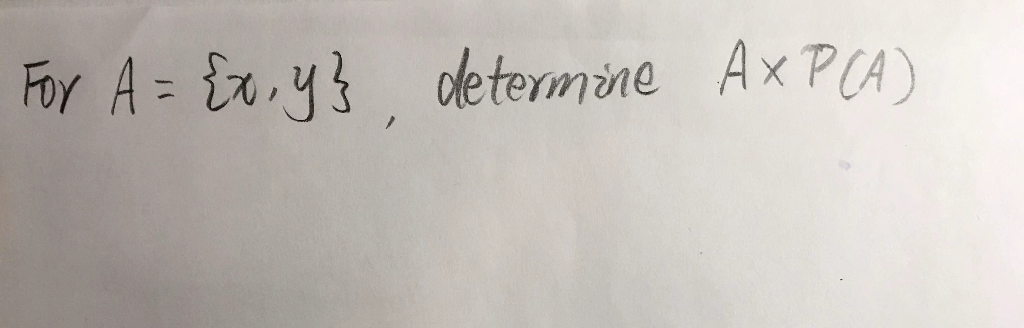 For A = {x, y}, determine A × P(A)